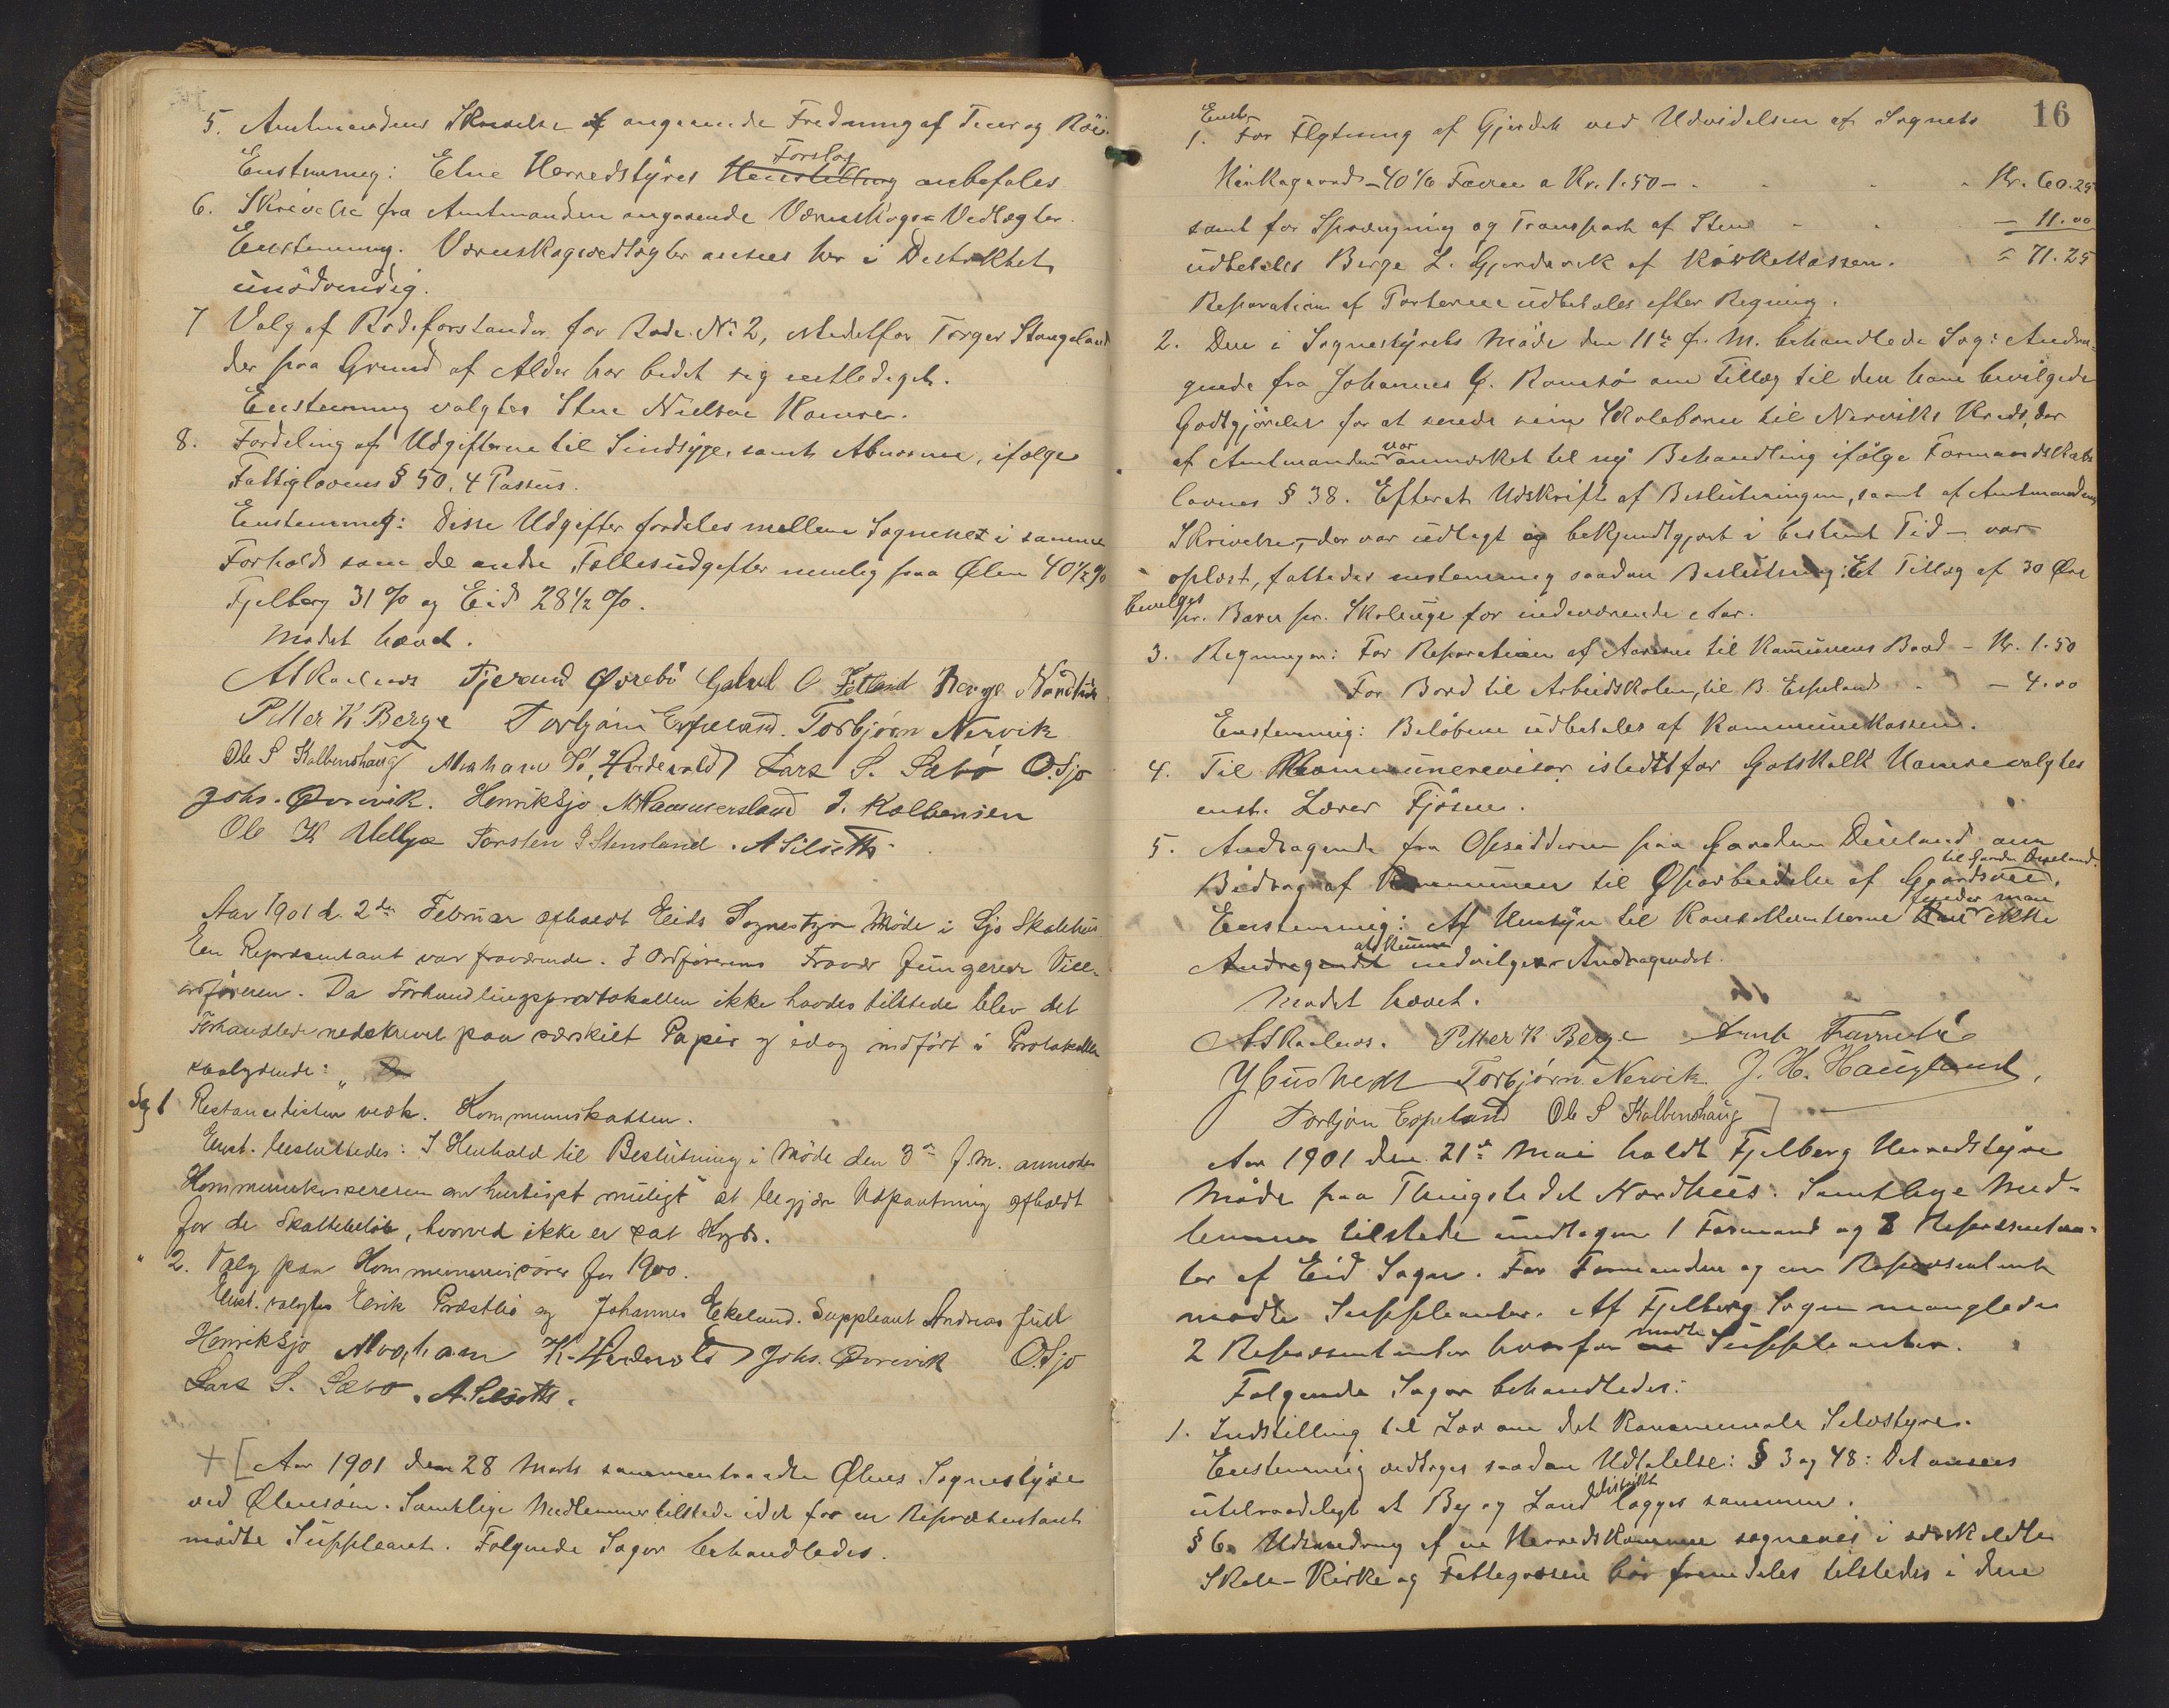 5. Amtmandens Skrivelse angaaende Fredning af Tiur og Röi.
Enstemmig: Etne Herredstyres Henstilling Forslag anbefales
6. Skrivelse fra Amtmanden angaaende Værneskogs Vedtægter.
Enstemmig. Værneskogvedtægter ansees her i Destriktet
unödvendig.
7 Valg af Rodeforstander for Rode No 2, istedetfor Torger Stangeland
der paa Grund af Alder har bedet sig entlediget.
Enstemmig valgtes Sten Nielsen Hamre.
8. Fordeling af Udgifterne til Sindsyge, samt Abnorme, ifølge
Fattiglovens § 50, 4 Passus.
Enstemmig: Disse Udgifter fordeles mellem Sognene i samme
Forhold som de andre Fællesudgifter nemlig paa Ølen 40 1/2 %
Fjelberg 31 % og Eid 28 1/2 %.
Mødet hævet.
Tjerand Øvrebö Gabriel O Fetland
Petter K Berge Torbjørn Espeland. Torbjørn Nervik
Ole S Kalbenshaug Abraham K. Hardeveld Lars S. Sæbö O. Sjo
Johs. Øvrevik. Henrik Sjo M Hammersland J. Kalbensen
Ole K Torsten J Stensland. A Silseth.
Aar 1901 d. 2den Februar afholdt Eids Sognestyr Møde i Sjo Skolehus.
En Repræsentant var fraværende. I Ordførerens Fravær fungerede Vice-
ordføreren. Da Forhandlingsprotokollen ikke havdes tilstede blev det
Forhandlede nedskrevet paa særskilt Papir og idag indført i Protokollen
saalydende:
Sag 1 Restancelisten vedk. Kommuneskatten.
Enst. besluttedes: I Henhold til Beslutning i Møde den 3die f. M. anmodes
Kommunekassereren om hurtigst muligt at begjære Udpantning afholdt
for de Skattebeløb, hvorved ikke er sat Kryds.
" 2. Valg paa Kommunerevisorer for 1900.
Enst. valgtes Eirik Præstbø og Johannes Ekeland. Suppleant Andreas
Henrik Sjo Abraham K. Hardeveld Johs. Øvrevik O. Sjo
Lars S. Sæbo. A. Silseth.
+ [ Aar 1901 den 28 Marts sammentraadte Ølens Sognestyre
ved Ølensöen. Samtlige Medlemmer tilstede idet for en Repræsentant
mödte Suppleant. Følgende Sager behandledes.
16
Enst.
1. For Flytning af Gjerdet ved Udvidelsen af Sognets
Kirkegaard - 40 1/6 Favne a Kr. 1.50 - Kr. 60.25
samt for Sprængning og Transport af Sten - 11.00
udbetales Berge L. Gjerdevik af Kirkekassen. = 71.25
Reparation af Porterne udbetales efter Regning.
2. Den i Sognestyrets Møde den 11te f. M. behandlede Sag: Andra-
gende fra Johannes Ramsö om Tillæg til den ham bevilgede
Godtgjörelse for at sende sine Skolebørn til Nerviks Kreds, der
af Amtmanden var anmerket til ny Behandling ifölge Formandskabs
lovens § 38. Efterat Udskrift af Beslutningen, samt af Amtmandens
Skrivelse, - der var udlagt og bekjendtgjort i bestemt Tid - var
oplæst, fattedes enstemmig saadan Beslutning: Et Tillæg af 30 Øre
bevilges pr. Barn pr. Skoleuge for indeværende Aar.
3. Regninger: For Reparation af Aarerne til Kommunens Baad - Kr. 1.50
For Bord til Arbeidskolen, til B. Espeland - 4.00
Enstemmig: Beløbene udbetales af Kommunekassen.
4. Til Kommunerevisor istedetfor Gotskalk Hamre valgtes
enst. Lærer Fjösne.
5. Andragende fra Opsidderne paa Gaarden Dueland om
Bidrag af Kommunen til Oparbeidelse af Gaardsvei til Gaarden Dueland.
Enstemmig: Af Hensyn til Konsekventserne finder man ikke
Andragendet at kunne indvilge Andragendet.
Mødet hævet.
Petter K Berge
Torbjørn Nervik. J. H. Haugland,
Torbjørn Espeland Ole S Kalbenshaug ]
Aar 1901 den 21de Mai holdt Fjelberg Herredstyre
Møde paa Thingstedet Nordhus. Samtlige Med-
lemmer tilstede undtagen 1 Formand og 2 Repræsentan-
ter af Eid Sogn. For Formanden og en Repræsentant
mødte Suppleanter. Af Fjelberg Sogn manglede
2 Repræsentanter hvorfor mødte Suppleanter.
Følgende Sager behandledes:
1. Indstilling til Lov om det Kommunale Selvstyre.
Enstemmig vedtoges saadan Udtalelse: § 3 og 48: Det ansees
utilraadeligt at By og Landdistrikt lægges sammen.
§ 6. Udsondring af en Herredskommune sognevis i særskildte
Skole- Kirke og Fattigvæsen bör fremdeles tilstedes i den